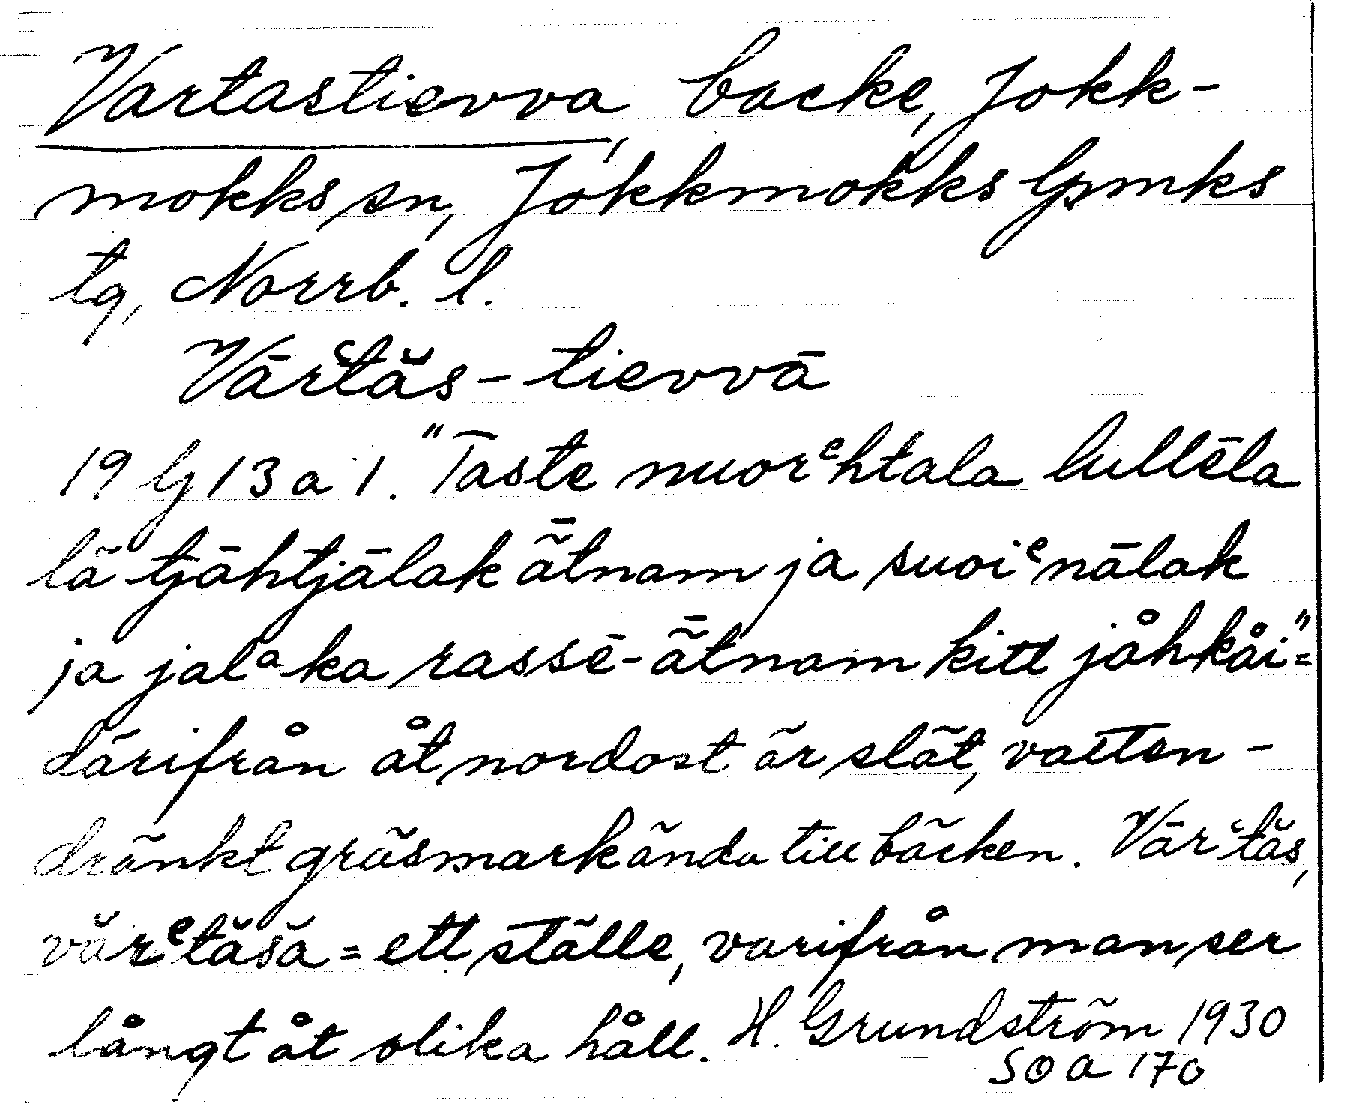 Vartastievva, backe, Jokk-
mokks sn, Jokkmokks lpmks
tg, Norrb. l.
Vārᵋtăs-tievvā
19 G 13 a 1. "Taste nuorᵉhtala lullēla
lä tjāhtjālak ǟtnam ja suoiᵉnālak
ja jalᵃka rassē-ǟtnam kitt jåhkåi"=
därifrån åt nordost är slät, vatten-
dränkt gräsmark ända till bäcken. Vārᵋtăs,
vărᵉtăsa = ett ställe, varifrån man ser
långt åt olika håll. H. Grundström 1930
SOA 170